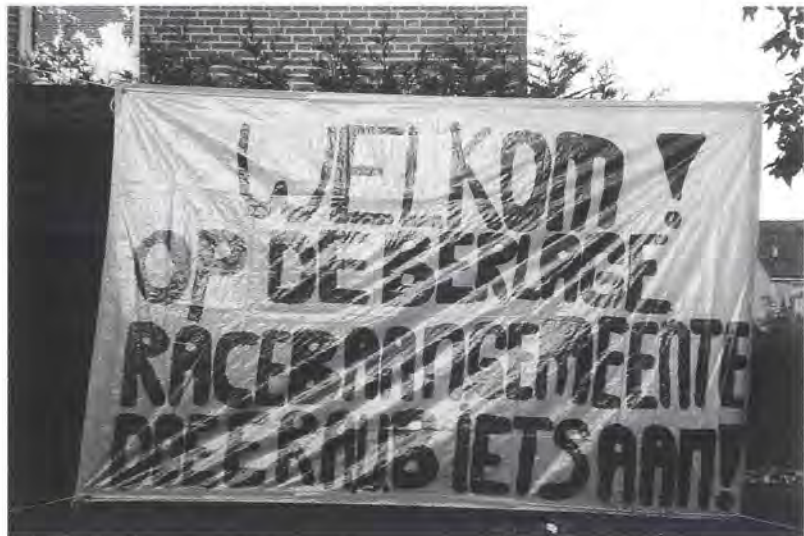 WELKOM!
OP DE BERLAGE
RACEBAAN GEMEENTE
DOE ER AUB IETS AAN!